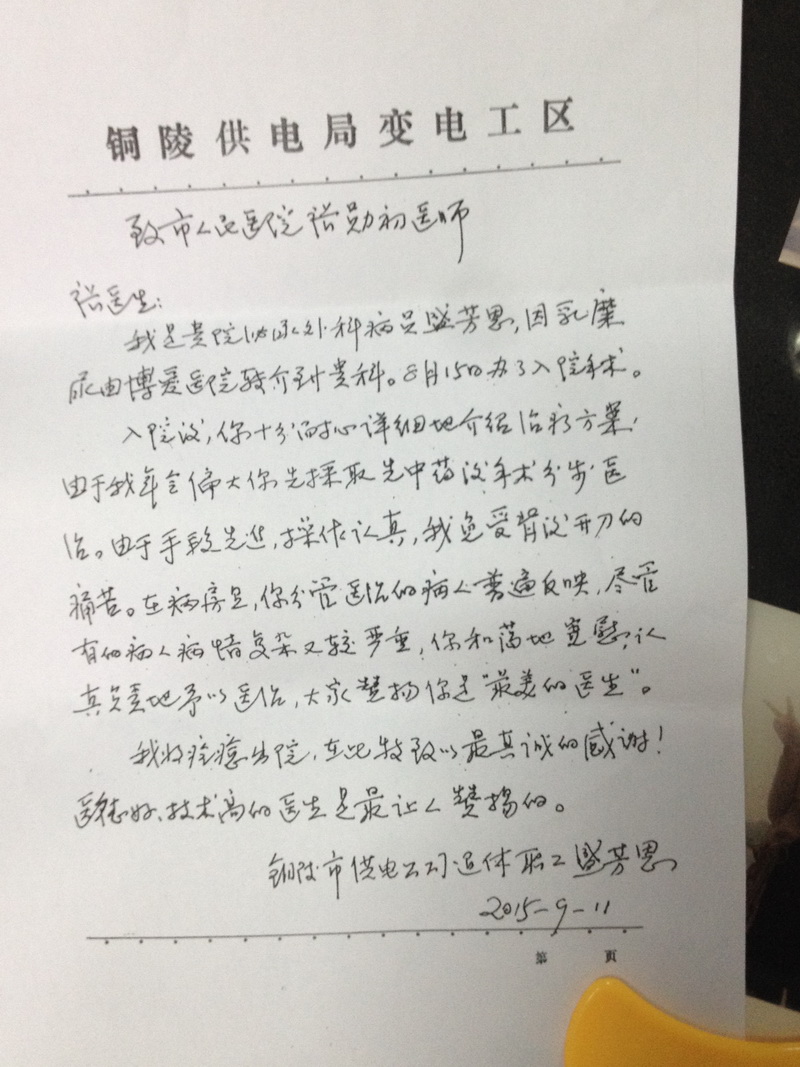 铜陵供电局变电工区
致市人民医院褚勋初医师
褚医生:
我是贵院泌尿外科病员盛芳恩,因乳糜
尿由博爱医院转介到贵科。8月15日办了入院手术。
入院后,你十分耐心详细地介绍治疗方案.
由于我年令偏大你先採取先中药后手术分步医
治。由于手段先进,操作认真,我免受背后开刀的
痛苦。在病房里,你分管医治的病人普遍反映,尽管
有的病人病情复杂又较严重,你和蔼地宽慰,认
真负责地予以医治,大家赞扬你是“最美的医生”。
我将痊癒出院,在此特致以最真诚的感谢!
医德好、技术高的医生是最让人赞扬的。
铜陵市供电公司退休职工盛芳恩
2015-9-11
第 页